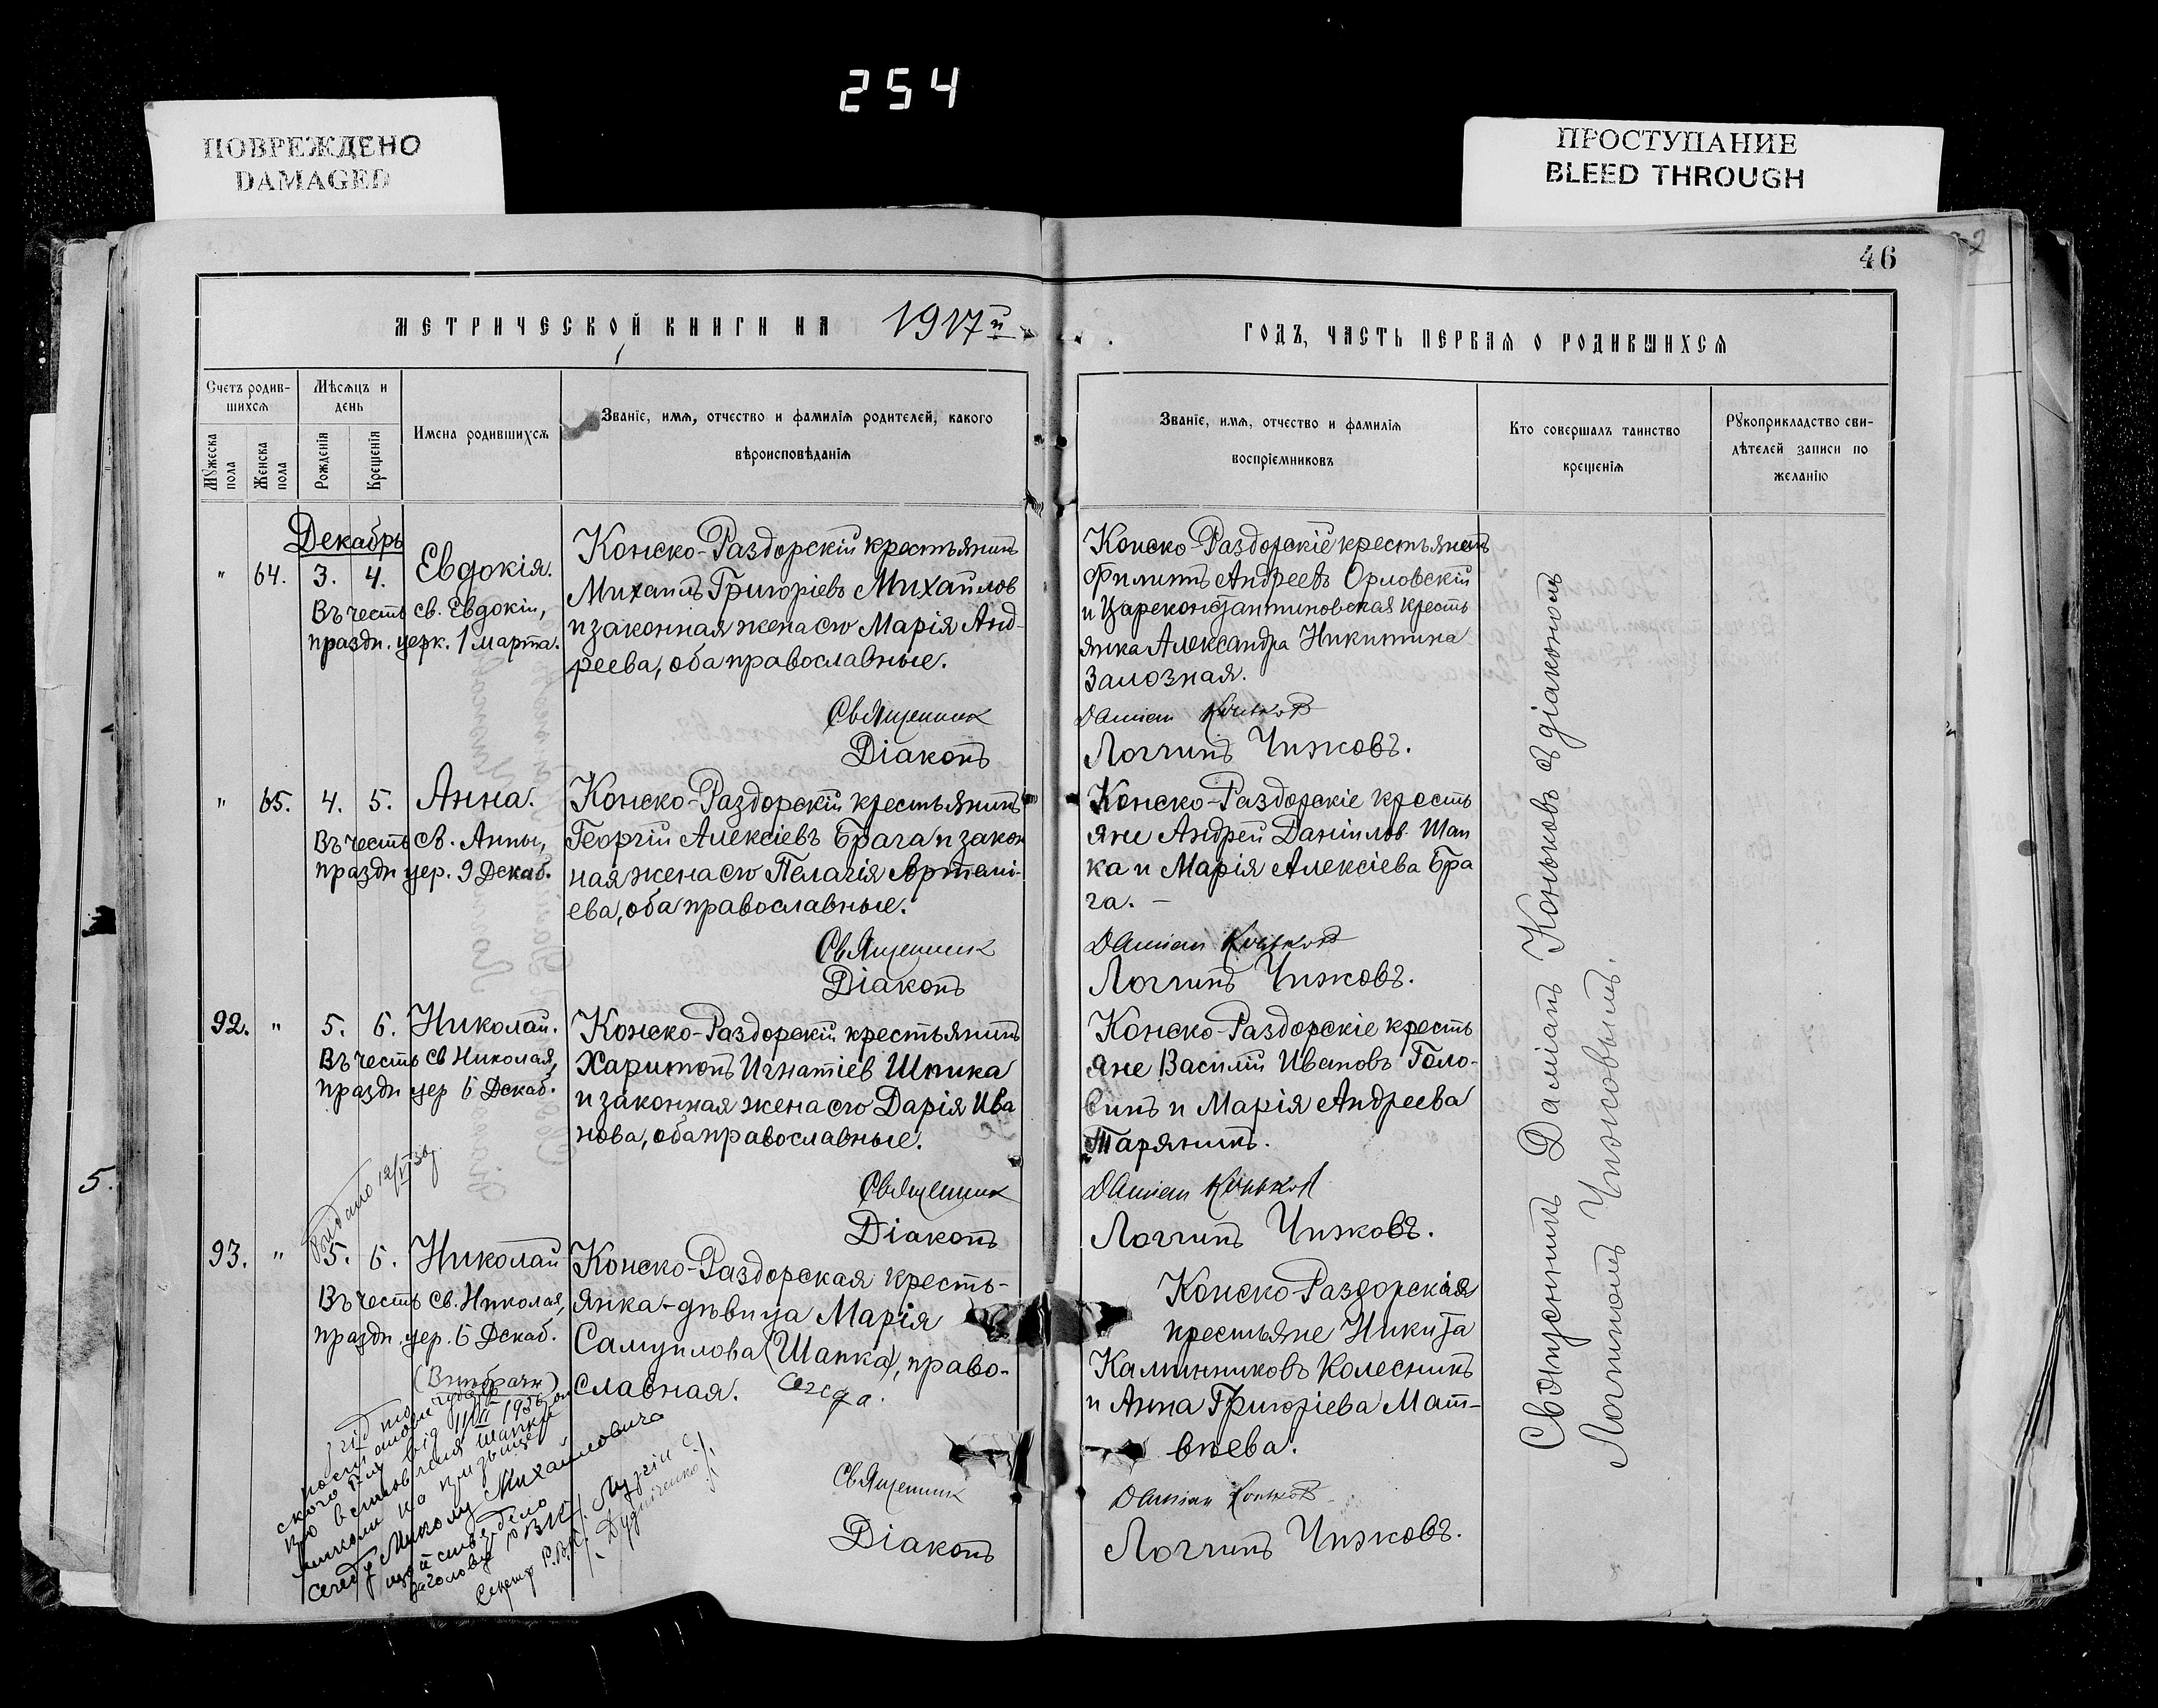 254
ПОВРЕЖДЕНО
DAMAGED
ПРОСТУПАНИЕ
BLEED THROUGH
46
МЕТРИЧЕСКОЙ КНИГИ НА 1917й
ГОДЪ, ЧАСТЬ ПЕРВАЯ О РОДИВШИХСЯ
Счетъ родив-
шихся
Мѣсяцъ и
день
Мужеска
пола
Женска
пола
Рожденія
Крещенія
Имена родившихся
Званіе, имя, отчество и фамилія родителей, какого
вѣроисповѣданія
Званіе, имя, отчество и фамилія
воспріемниковъ
Кто совершалъ таинство
крещенія
Рукоприкладство сви-
дѣтелей записи по
желанію
Декабрь
" 64. 3. 4. Евдокія.
Въ честь св. Евдокіи,
праздн. церк. 1 марта.
Конско-Раздорскій крестьянинъ
Михаилъ Григоріевъ Михайлов
и законная жена его Марія Анд-
реева, оба православные.
Священник
Діаконъ
Конско-Раздорскіе крестьянинъ
Филиппъ Андреевъ Орловскій
и Цареконстантиновская кресть
янка Александра Никитина
Залозная.
Даміан Коньков
Логгинъ Чижовъ.
" 65. 4. 5. Анна.
Въ честь св. Анны,
праздн цер. 9 Декаб.
Конско-Раздорскій крестьянинъ
Георгій Алексіевъ Брага и закон
ная жена его Пелагія Артемі-
ева, оба православные.
Священник
Діаконъ
Конско-Раздорскіе кресть
яне Андрей Даніилов. Шап
ка и Марія Алексіева Бра
га. –
Даміан Коньков
Логгинъ Чижовъ.
92. " 5. 6. Николай.
Въ честь св Николая,
праздн цер 6 Декаб.
Конско-Раздорскій крестьянинъ
Харитонъ Игнатіев Шпика
и законная жена его Дарія Ива
нова, оба православные.
Священник
Діаконъ
Конско-Раздорскіе кресть
яне Василій Ивановъ Голо-
винъ и Марія Андреева
Таряникъ.
Даміан Коньков
Логгинъ Чижовъ.
5.
Видано 12/VI 30
93. " 5. 6. Николай
Въ честь св. Николая,
праздн. цер. 6 Декаб.
Конско-Раздорская кресть-
янка-дѣвица Марія
Самуилова (Шапка), право-
славная.
Конско-Раздорскія
крестьяне Никита
Калинниковъ Колесникъ
и Анна Григоріева Мат-
вѣева.
Священник
Діаконъ
Даміан Коньков
Логгинъ Чижовъ.
від 11/VI 1936
Миколу Михайловича
Священникъ Даміанъ Коньковъ съ діакономъ
Логгиномъ Чижовымъ.